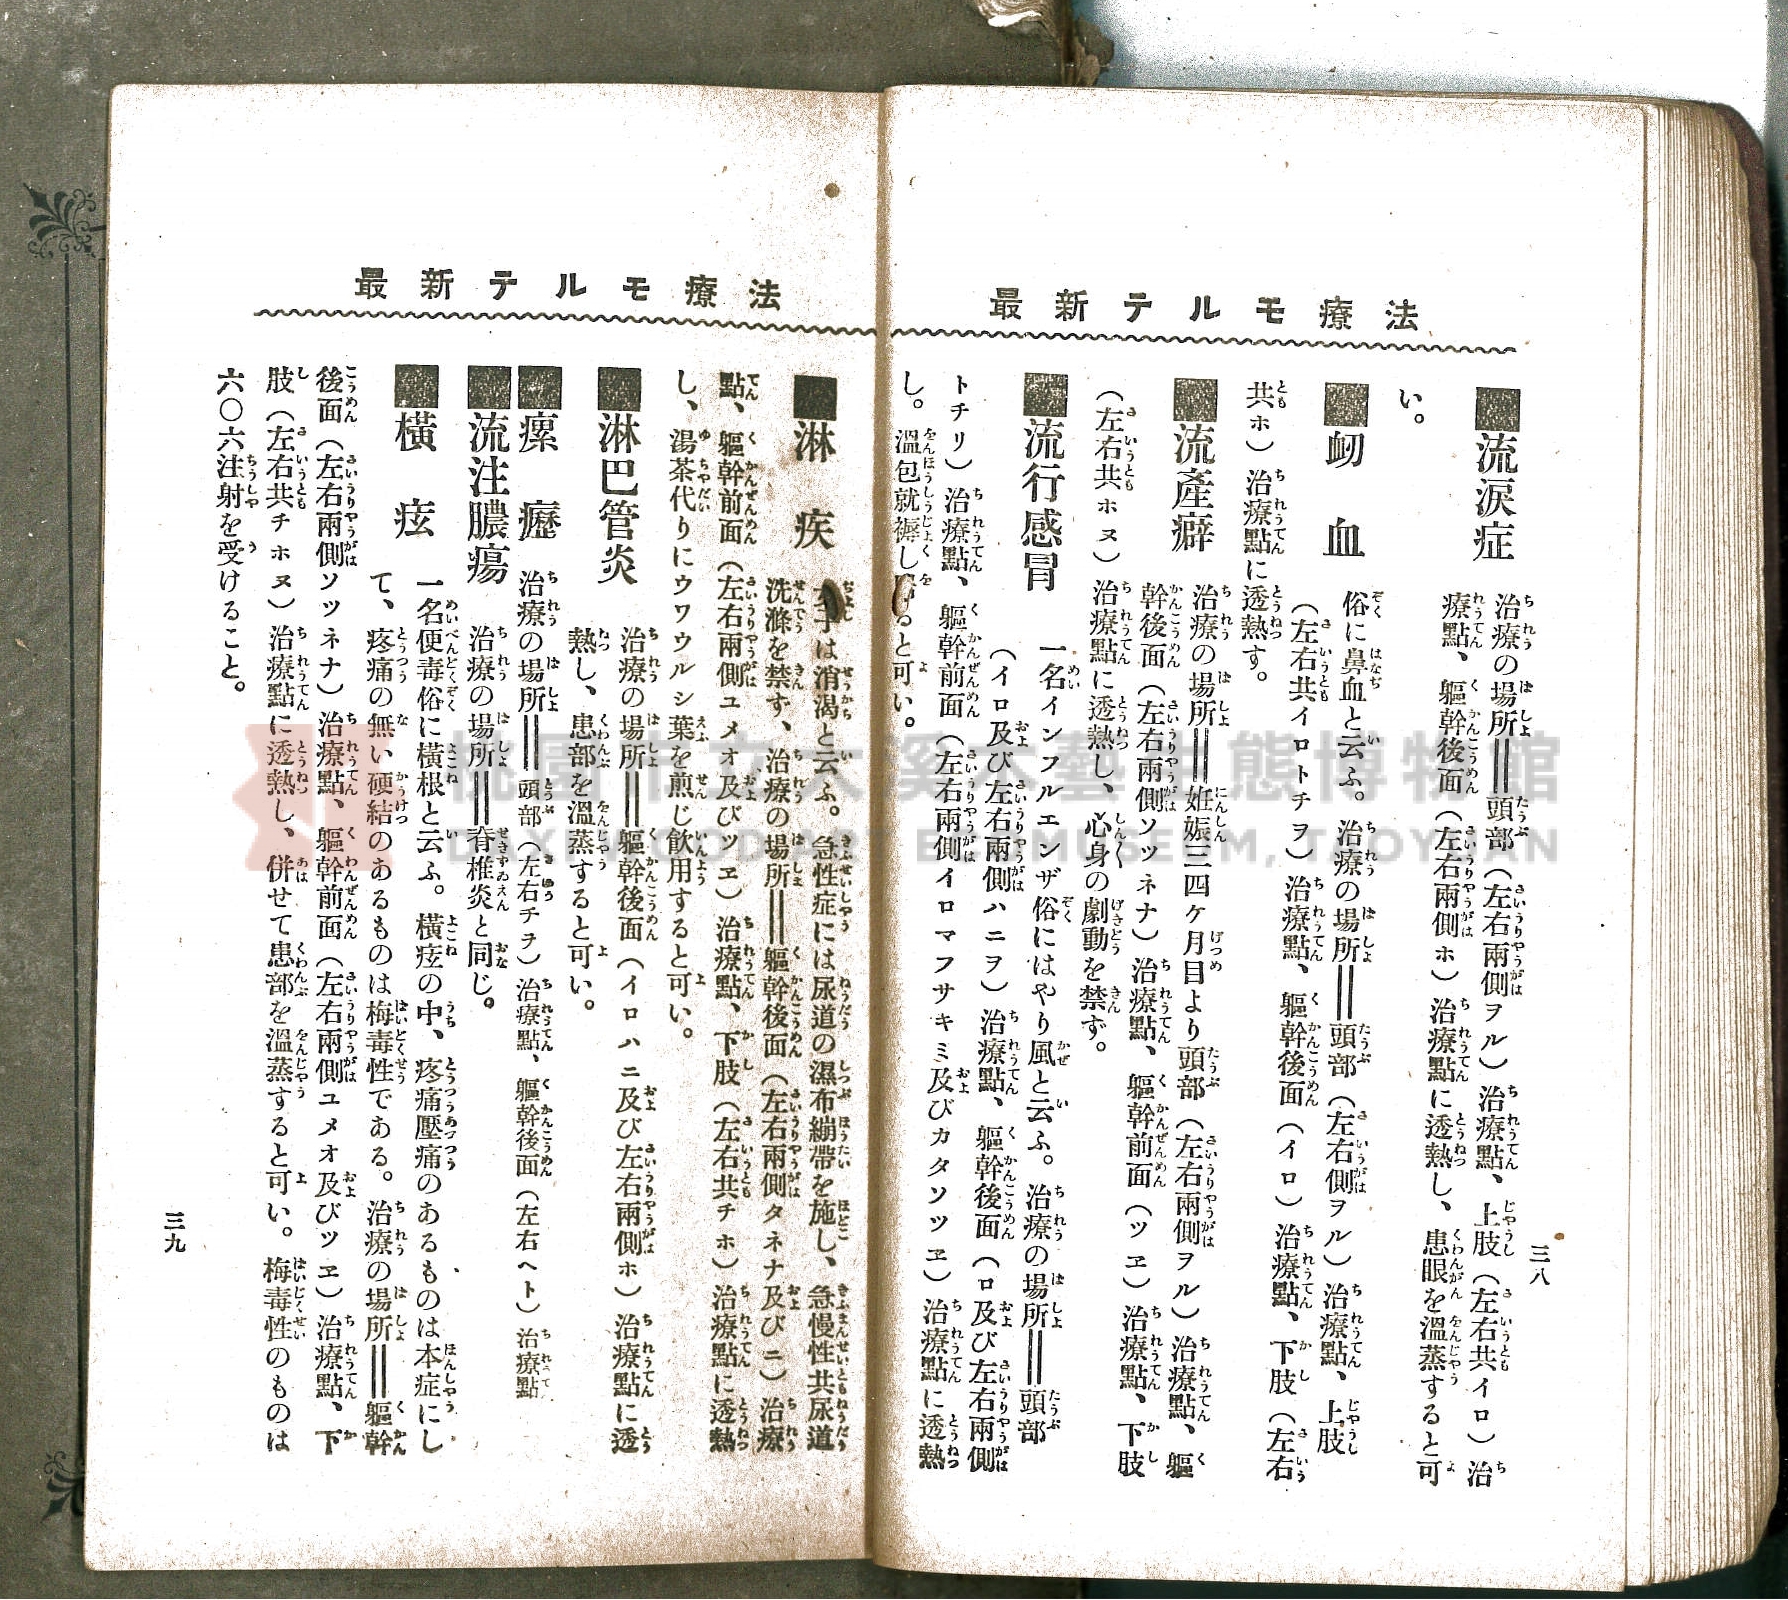 最新テルモ療法
三八
■流涙症 治療の場所＝頭部（左右兩側ヲル）治療點、上肢（左右共イロ）治
療點、軀幹後面（左右兩側ホ）治療點に透熱し、患眼を溫蒸すると可
い。
■衂血 俗に鼻血と云ふ。治療の場所＝頭部（左右側ヲル）治療點、上肢
（左右共イロトチヲ）治療點、軀幹後面（イロ）治療點、下肢（左右
共ホ）治療點に透熱す。
■流產癖 治療の場所＝姙娠三四ケ月目より頭部（左右兩側ヲル）治療點、軀
幹後面（左右兩側ソツネナ）治療點、軀幹前面（ツヱ）治療點、下肢
（左右共ホヌ）治療點に透熱し、心身の劇動を禁ず。
■流行感冒 一名インフルエンザ俗にはやり風と云ふ。治療の場所＝頭部
（イロ及び左右兩側ハニヲ）治療點、軀幹後面（ロ及び左右兩側
トチリ）治療點、軀幹前面（左右兩側イロマフサキミ及びカタソツヱ）治療點に透熱
し。溫包就褥し ると可い。
最新テルモ療法
■淋疾 女子は消渴と云ふ。急性症には尿道の濕布繃帶を施し、急慢性共尿道
洗滌を禁す、治療の場所＝軀幹後面（左右兩側タネナ及びニ）治療
點、軀幹前面（左右兩側ユメオ及びツヱ）治療點、下肢（左右共チホ）治療點に透熱
し、湯茶代りにウワウルシ葉を煎じ飮用すると可い。
■淋巴管炎 治療の場所＝軀幹後面（イロハニ及び左右兩側ホ）治療點に透
熱し、患部を溫蒸すると可い。
■瘰癧 治療の場所＝頭部（左右チヲ）治療點、軀幹後面（左右ヘト）治療點
■流注膿瘍 治療の場所＝脊椎炎と同じ。
■橫痃 一名便毒俗に橫根と云ふ。橫痃の中、疼痛壓痛のあるものは本症にし
て、疼痛の無い硬結のあるものは梅毒性である。治療の場所＝軀幹
後面（左右兩側ソツネナ）治療點、軀幹前面（左右兩側ユメオ及びツヱ）治療點、下
肢（左右共チホヌ）治療點に透熱し、併せて患部を溫蒸すると可い。梅毒性のものは
六〇六注射を受けること。
三九
桃園市立大溪木藝生態博物館
DAXI WOOD ART ECOMUSEUM, TAOYUAN